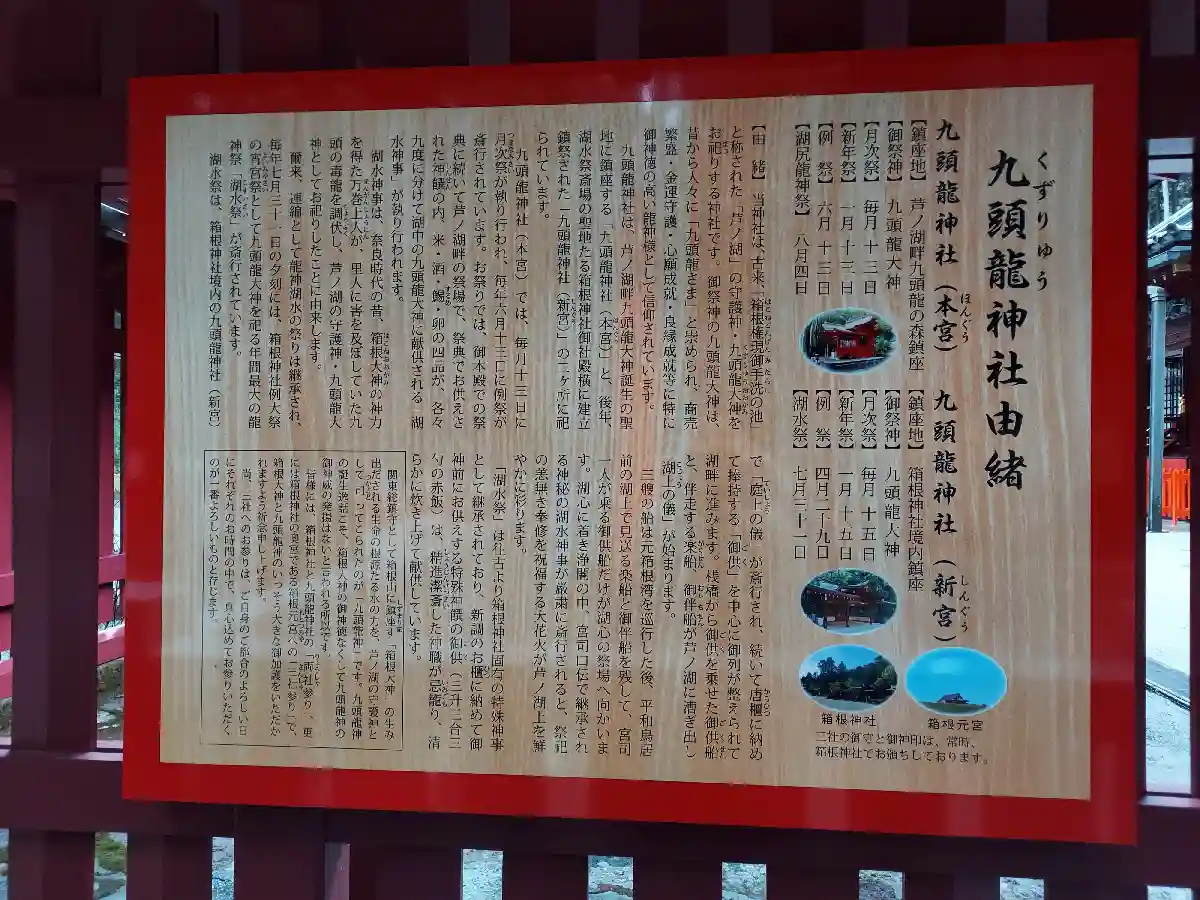 九頭龍神社由緒
くずりゅう
九頭龍神社（本宮）
ほんぐう
【鎮座地】芦ノ湖畔九頭龍の森鎮座
【御祭神】九頭龍大神
【月次祭】毎月十三日
【新年祭】一月十三日
【例　祭】六月十三日
【湖尻龍神祭】八月四日
九頭龍神社（新宮）
しんぐう
【鎮座地】箱根神社境内鎮座
【御祭神】九頭龍大神
【月次祭】毎月十五日
【新年祭】一月十五日
【例　祭】四月二十九日
【湖水祭】七月三十一日
箱根神社
箱根元宮
三社の御守と御神印は、常時、
箱根神社でお頒ちしております。
【由　緒】当神社は、古来、「箱根権現御手洗の池」
と称された「芦ノ湖」の守護神・九頭龍大神を
お祀りする神社です。御祭神の九頭龍大神は、
昔から人々に「九頭龍さま」と崇められ、商売
繁盛・金運守護・心願成就・良縁成就等に特に
御神徳の高い龍神様として信仰されています。
九頭龍神社は、芦ノ湖畔九頭龍大神誕生の聖
地に鎮座する「九頭龍神社（本宮）」と、後年、
湖水祭斎場の聖地たる箱根神社御社殿横に建立
鎮祭された「九頭龍神社（新宮）」の二ヶ所に祀
られています。
九頭龍神社（本宮）では、毎月十三日に
月次祭が執り行われ、毎年六月十三日に例祭が
斎行されています。お祭りでは、御本殿での祭
典に続いて芦ノ湖畔の祭場で、祭典でお供えさ
れた神饌の内、米・酒・鯣・卵の四品が、各々
九度に分けて湖中の九頭龍大神に献供される「湖
水神事」が執り行われます。
湖水神事は、奈良時代の昔、箱根大神の神力
を得た万巻上人が、里人に害を及ぼしていた九
頭の毒龍を調伏し、芦ノ湖の守護神・九頭龍大
神としてお祀りしたことに由来します。
爾来、連綿として龍神湖水の祭りは継承され、
毎年七月三十一日の夕刻には、箱根神社例大祭
の宵宮祭として九頭龍大神を祀る年間最大の龍
神祭「湖水祭」が斎行されています。
湖水祭は、箱根神社境内の九頭龍神社（新宮）
で「庭上の儀」が斎行され、続いて唐櫃に納め
て捧持する「御供」を中心に御列が整えられて
湖畔に進みます。桟橋から御供を乗せた御供船
と、伴走する楽船、御伴船が芦ノ湖に漕ぎ出し
「湖上の儀」が始まります。
三艘の船は元箱根湾を巡行した後、平和鳥居
前の湖上で見送る楽船と御伴船を残して、宮司
一人が乗る御供船だけが湖心の祭場へ向かいま
す。湖心に着き浄闇の中、宮司口伝で継承され
る神秘の湖水神事が厳粛に斎行されると、祭祀
の恙無き奉修を祝福する大花火が芦ノ湖上を鮮
やかに彩ります。
「湖水祭」は往古より箱根神社固有の特殊神事
として継承されており、新調のお櫃に納めて御
神前にお供えする特殊神饌の御供（三升三合三
勺の赤飯）は、精進潔斎した神職が忌籠り、清
らかに炊き上げて献供しています。
関東総鎮守として箱根山に鎮座す「箱根大神」の生み
出だされる生命の根源たる水の力を、芦ノ湖の守護神と
して司ってこられたのが「九頭龍神」です。九頭龍神
の誕生逸話こそ、箱根大神の御神徳なくして九頭龍神の
御神威の発揚はないと言われる所以です。
皆様には、箱根神社と九頭龍神社の「両社参り」、更
には箱根神社の奥宮である箱根元宮への「三社参り」で、
箱根大神と九頭龍神のいっそう大きな御加護をいただか
れますよう祈念申し上げます。
尚、三社へのお参りは、ご自身のご都合のよろしい日
にそれぞれのお時間の中で、真心込めてお参りいただく
のが一番よろしいものと存じます。